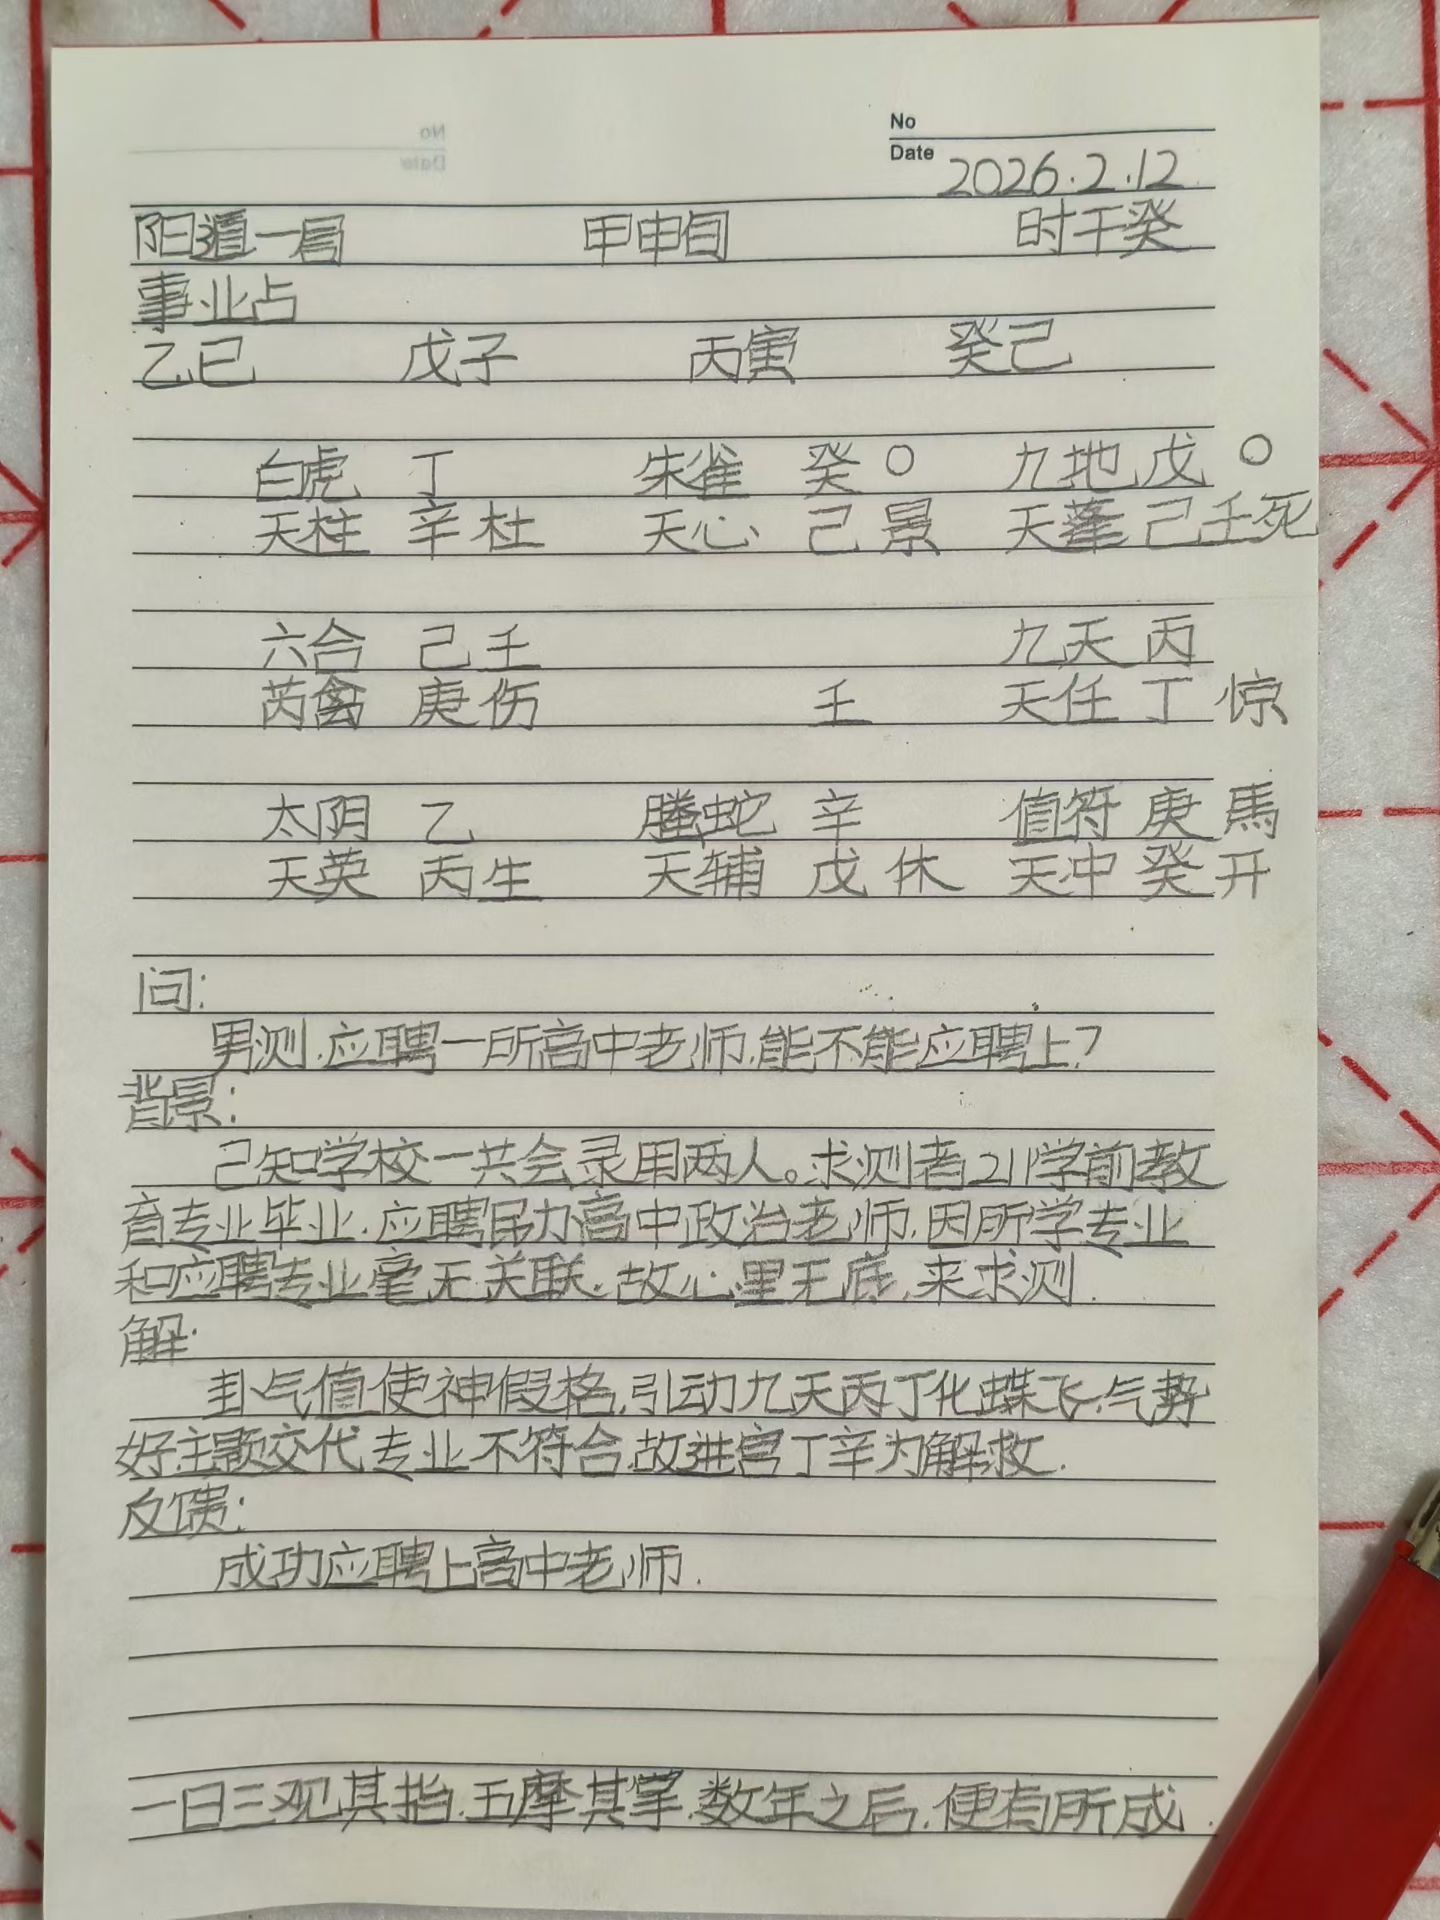 No
Date 2026.2.12
阳遁一局 甲申旬 时干癸
事业占
乙巳 戊子 丙寅 癸己
白虎 丁 朱雀 癸 〇 九地 戊 〇
天柱 辛 杜 天心 己 景 天蓬 己壬死
六合 己壬 九天 丙
芮禽 庚伤 壬 天任 丁 惊
太阴 乙 螣蛇 辛 值符 庚 馬
天英 丙生 天辅 戊 休 天冲 癸 开
问:
男测.应聘一所高中老师.能不能应聘上?
背景:
己知学校一共会录用两人。求测者211学前教
育专业毕业.应聘民办高中政治老师.因所学专业
和应聘专业毫无关联.故心里无底.来求测.
解:
卦气值使神假格.引动九天丙丁化蝶飞.气势
好.主题交代专业不符合.故进宫丁辛为解救.
反馈:
成功应聘上高中老师.
一日三观其指.五摩其掌.数年之后.便有所成.